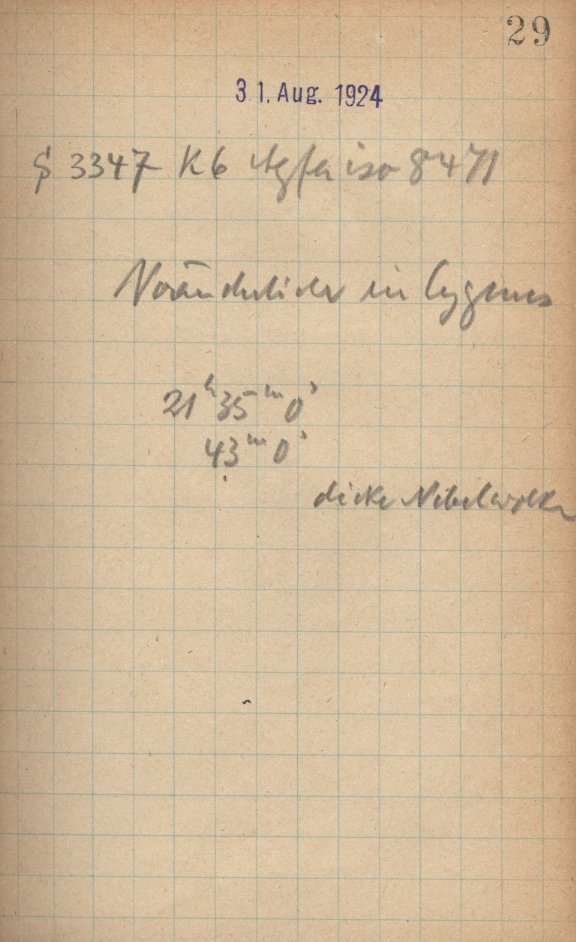 29
31. Aug. 1924
S 3347 K6 Agfa iso 8471
Veränderlicher in Cygnus
21ʰ 35ᵐ 0ˢ
43ᵐ 0ˢ
dicke Nebelwolken